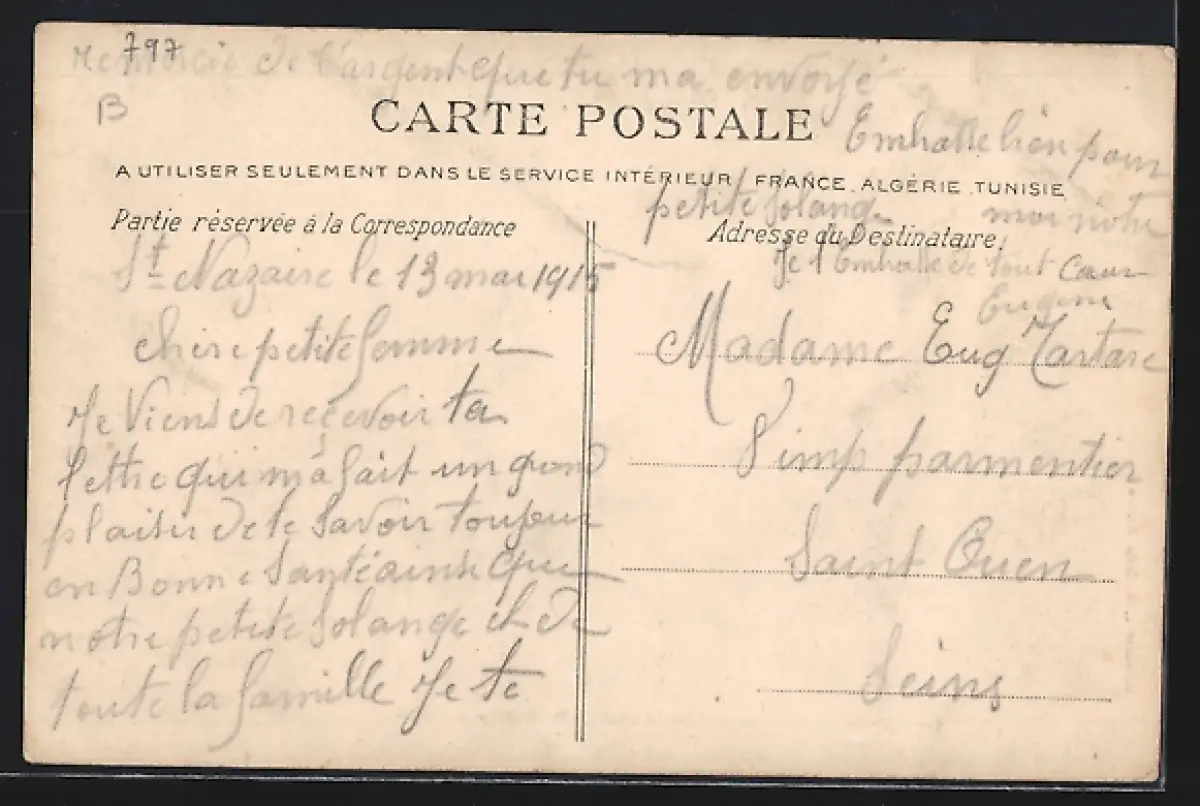 797
B
CARTE POSTALE
A UTILISER SEULEMENT DANS LE SERVICE INTÉRIEUR, FRANCE, ALGÉRIE, TUNISIE
Partie réservée à la Correspondance
St Nazaire le 13 mai 1915
Chère petite femme
Je Viens de recevoir ta
lettre qui m'a fait un grand
plaisir de te savoir toujour
en Bonne Santé ainsi que
notre petite Solange et de
toute la famille Je te
remercie de l'argent que tu ma envoyé
Embrasse bien pour
moi notre
petite Solange
Je t'Embrasse de tout Cœur
Eugène
Adresse du Destinataire.
Madame Eug
5 imp parmentier
Saint Ouen
Seine